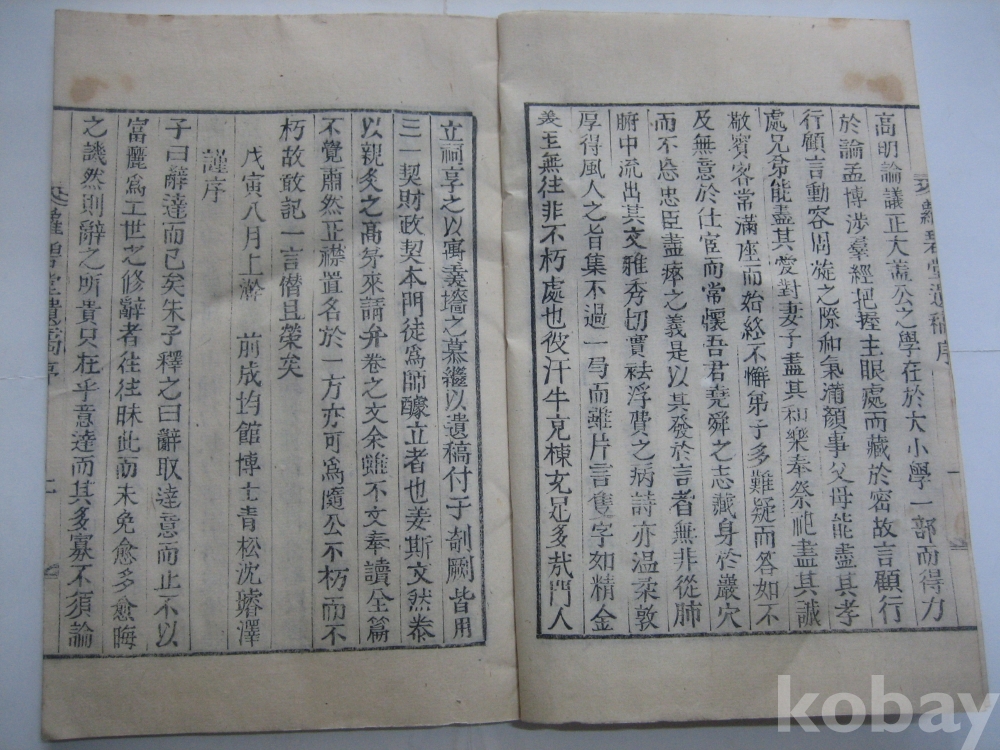 高明論議正大蓋公之學在於大小學一部而得力
於論孟博涉羣經把握主眼處而藏於密故言顧行
行顧言動容周旋之際和氣滿顏事父母能盡其孝
處兄弟能盡其愛對妻子盡其和樂奉祭祀盡其誠
敬賓客常滿座而始終不懈弟子多難疑而答如不
及無意於仕宦而常懷吾君堯舜之志藏身於巖穴
而不忘忠臣盡瘁之義是以其發於言者無非從肺
腑中流出其文雅秀切實祛浮費之病詩亦温柔敦
厚得風人之旨集不過一局而離片言隻字如精金
美玉無往非不朽處也彼汗牛充棟玄足多哉門人
立祠享之以寓羹墻之慕繼以遺稿付于剞劂皆用
三一契財政契本門徒爲師醵立者也姜斯文然泰
以親炙之高弟來請弁卷之文余雖不文奉讀全篇
不覺肅然正襟置名於一方亦可爲隨公不朽而不
朽故敢記一言僭且榮矣
戊寅八月上澣 前成均館博士青松沈璿澤
謹序
子曰辭達而已矣朱子釋之曰辭取達意而止不以
富麗爲工世之修辭者往往昧此而未免愈多愈晦
之譏然則辭之所貴只在乎意達而其多寡不須論
堂遺稿序 一
堂遺稿序 二
kobay